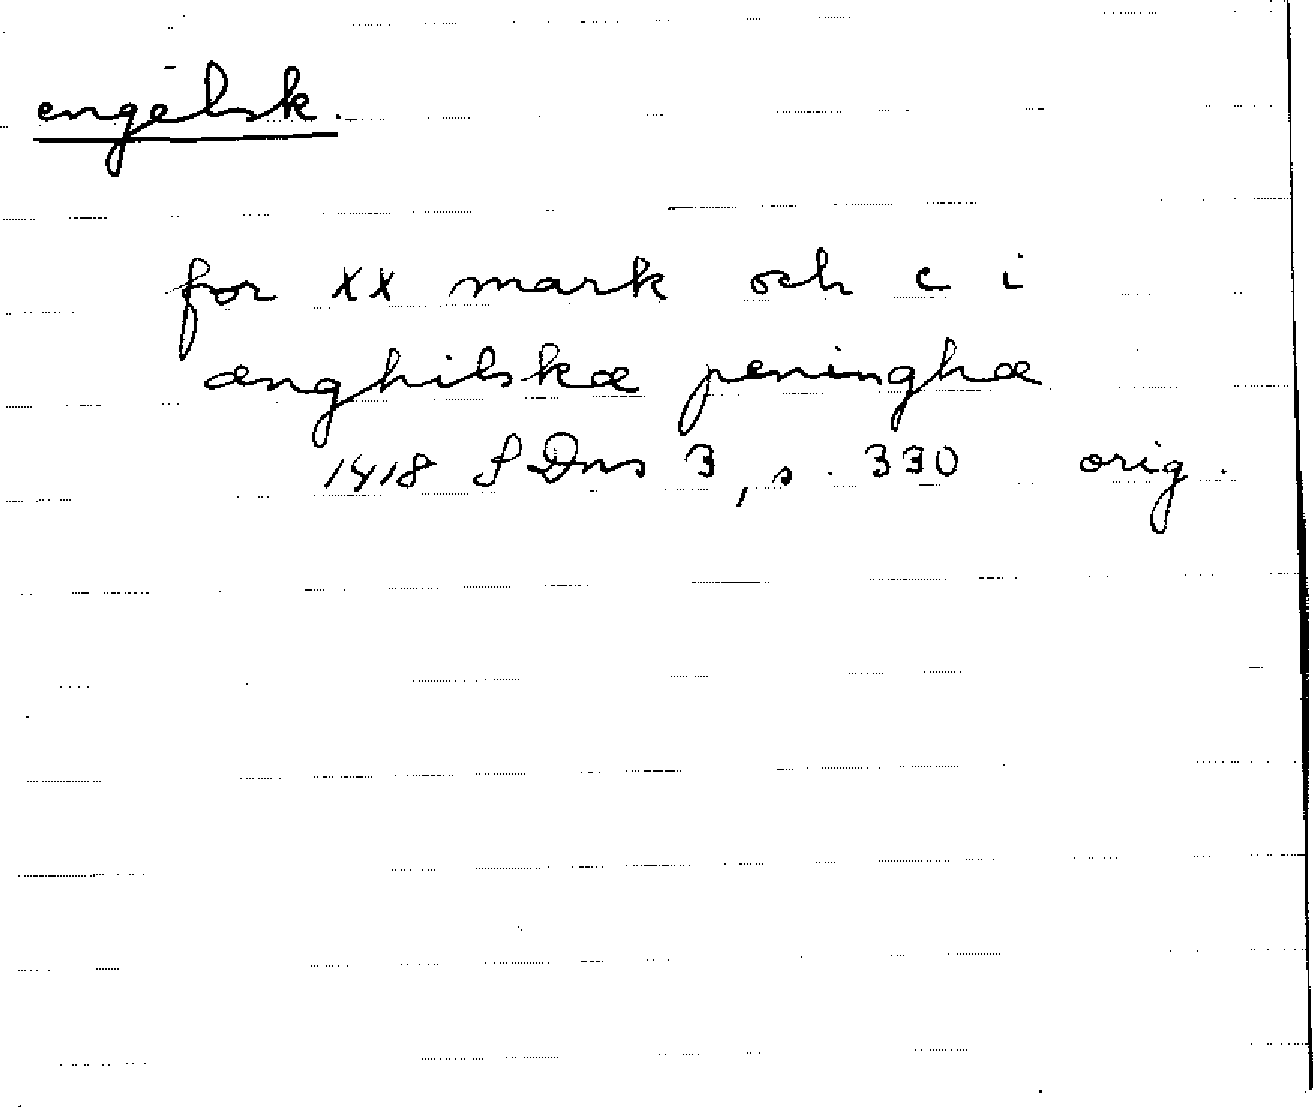 engelsk.
for xx mark och c i
ænghilskæ peninghæ
1418 SDns 3, s. 330 orig.